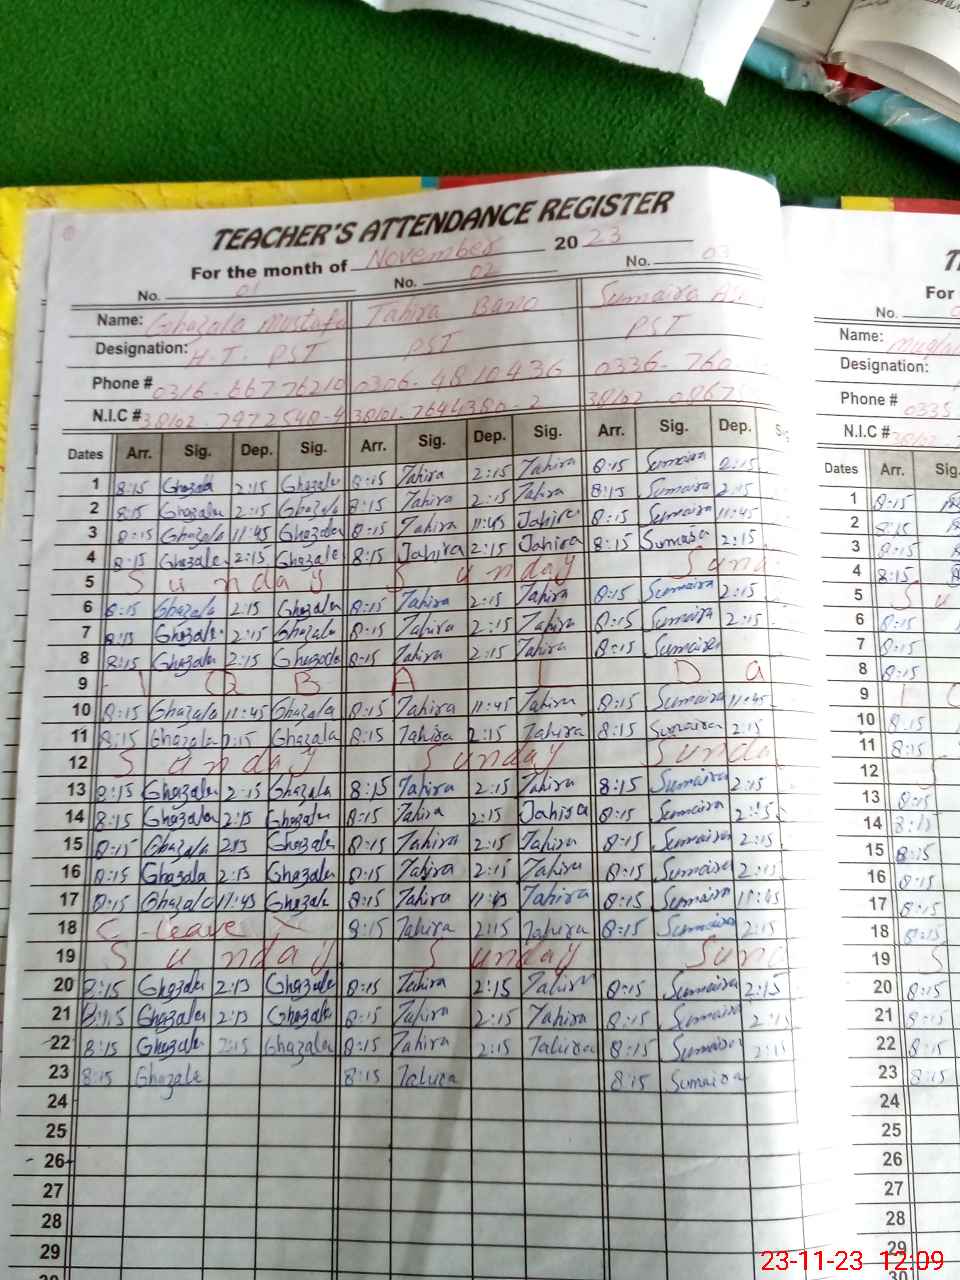 TEACHER'S ATTENDANCE REGISTER
For the month of November 2023
No. 01 No. 02 No. 03
Name: Ghazala Mustafa Tahira Bano Sumaira
Designation: H.T. PST PST PST
Phone # 0316-66776210 0306-4810436 0336-760
N.I.C # 38102-7972548-4 38101-7644380-2 38102-0867
Dates Arr. Sig. Dep. Sig. Arr. Sig. Dep. Sig. Arr. Sig. Dep. S
1 8:15 Ghazala 2:15 Ghazala 8:15 Tahira 2:15 Tahira 8:15 Sumaira 2:15
2 8:15 Ghazala 2:15 Ghazala 8:15 Tahira 2:15 Tahira 8:15 Sumaira 2:15
3 8:15 Ghazala 11:45 Ghazala 8:15 Tahira 11:45 Tahira 8:15 Sumaira 11:45
4 8:15 Ghazala 2:15 Ghazala 8:15 Tahira 2:15 Tahira 8:15 Sumaira 2:15
5 Sunday Sunday Sund
6 8:15 Ghazala 2:15 Ghazala 8:15 Tahira 2:15 Tahira 8:15 Sumaira 2:15
7 8:15 Ghazala 2:15 Ghazala 8:15 Tahira 2:15 Tahira 8:15 Sumaira 2:15
8 8:15 Ghazala 2:15 Ghazala 8:15 Tahira 2:15 Tahira 8:15 Sumaira
9 I Q B A L D a
10 8:15 Ghazala 11:45 Ghazala 8:15 Tahira 11:45 Tahira 8:15 Sumaira 11:45
11 8:15 Ghazala 2:15 Ghazala 8:15 Tahira 2:15 Tahira 8:15 Sumaira 2:15
12 Sunday Sunday Sunda
13 8:15 Ghazala 2:15 Ghazala 8:15 Tahira 2:15 Tahira 8:15 Sumaira 2:15
14 8:15 Ghazala 2:15 Ghazala 8:15 Tahira 2:15 Tahira 8:15 Sumaira 2:15
15 8:15 Ghazala 2:15 Ghazala 8:15 Tahira 2:15 Tahira 8:15 Sumaira 2:15
16 8:15 Ghazala 2:15 Ghazala 8:15 Tahira 2:15 Tahira 8:15 Sumaira 2:15
17 8:15 Ghazala 11:45 Ghazala 8:15 Tahira 11:45 Tahira 8:15 Sumaira 11:45
18 C - Leave 8:15 Tahira 2:15 Tahira 8:15 Sumaira 2:15
19 Sunday Sunday Sund
20 8:15 Ghazala 2:15 Ghazala 8:15 Tahira 2:15 Tahira 8:15 Sumaira 2:15
21 8:15 Ghazala 2:15 Ghazala 8:15 Tahira 2:15 Tahira 8:15 Sumaira 2:15
22 8:15 Ghazala 2:15 Ghazala 8:15 Tahira 2:15 Tahira 8:15 Sumaira 2:15
23 8:15 Ghazala 8:15 Tahira 8:15 Sumaira
24
25
26
27
28
29
30
For
No.
Name:
Designation:
Phone # 0335
N.I.C # 38102
Dates Arr. Sig.
1 8:15
2 8:15
3 8:15
4 8:15
5 S u
6 8:15
7 8:15
8 8:15
9 I
10 8:15
11 8:15
12 S
13 8:15
14 8:15
15 8:15
16 8:15
17 8:15
18 8:15
19 S
20 8:15
21 8:15
22 8:15
23 8:15
24
25
26
27
28
29
30
23-11-23 12:09